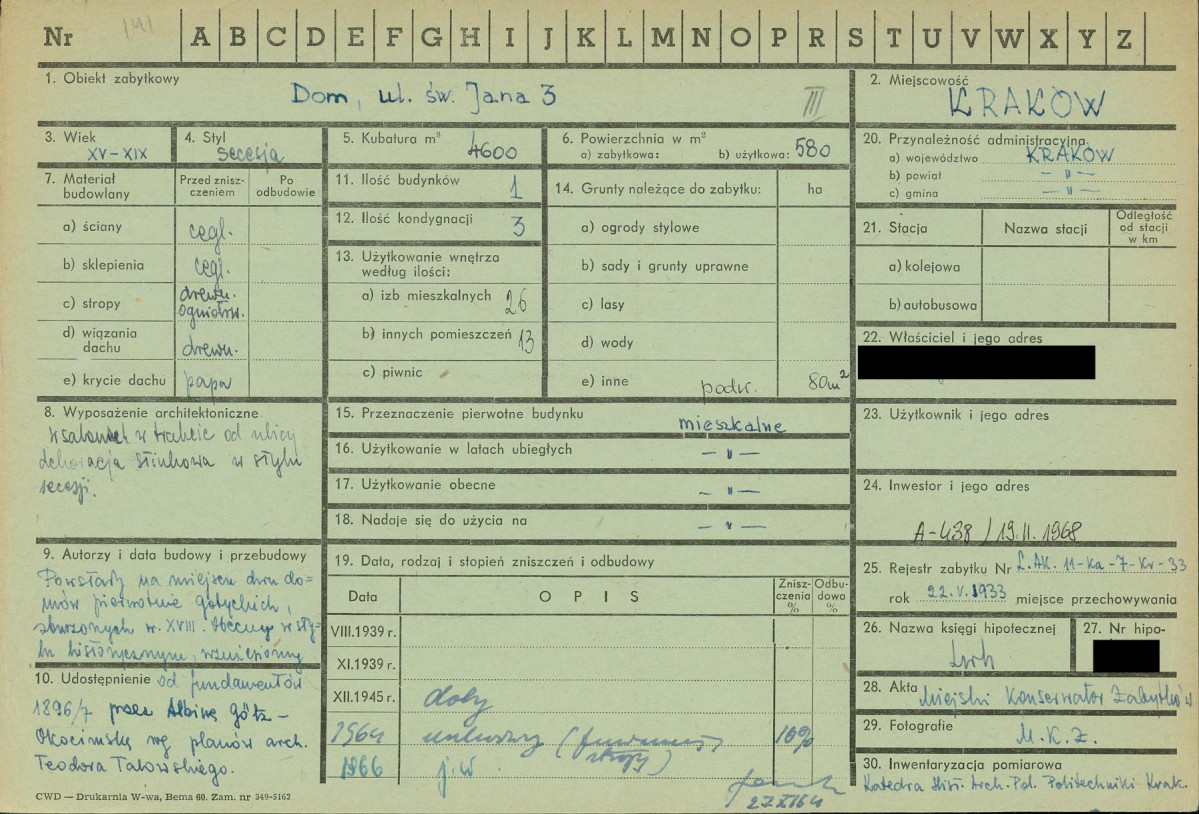 Nr 141 A B C D E F G H I J K L M N O P R S T U V W X Y Z
1. Obiekt zabytkowy
Dom, ul. św. Jana 3
III
2. Miejscowość
KRAKÓW
3. Wiek
XV–XIX
4. Styl
secesja
5. Kubatura m³ 4600
6. Powierzchnia w m²
a) zabytkowa: b) użytkowa: 580
20. Przynależność administracyjna
a) województwo KRAKÓW
b) powiat – " –
c) gmina – " –
7. Materiał budowlany
Przed zniszczeniem
Po odbudowie
a) ściany cegl.
b) sklepienia cegl.
c) stropy drewn. ogniotrw.
d) wiązania dachu drewn.
e) krycie dachu papa
11. Ilość budynków 1
12. Ilość kondygnacji 3
13. Użytkowanie wnętrza
według ilości:
a) izb mieszkalnych 26
b) innych pomieszczeń 13
c) piwnic
14. Grunty należące do zabytku: ha
a) ogrody stylowe
b) sady i grunty uprawne
c) lasy
d) wody
e) inne podw. 80m²
21. Stacja
Nazwa stacji
Odległość
od stacji
w km
a) kolejowa
b) autobusowa
22. Właściciel i jego adres
8. Wyposażenie architektoniczne
W salonach w trakcie od ulicy
dekoracja stiukowa w stylu
secesji.
15. Przeznaczenie pierwotne budynku mieszkalne
16. Użytkowanie w latach ubiegłych – " –
17. Użytkowanie obecne – " –
18. Nadaje się do użycia na – " –
23. Użytkownik i jego adres
24. Inwestor i jego adres
A-438 / 19.II.1968
9. Autorzy i data budowy i przebudowy
Powstały na miejscu dwu do=
mów pierwotnie gotyckich,
zburzonych w. XVIII. Obecny w sty-
lu historycznym, wzniesiony
10. Udostępnienie
od fundamentów
1896/7 przez Albinę Götz-
Okocimską wg planów arch.
Teodora Talowskiego.
19. Data, rodzaj i stopień zniszczeń i odbudowy
Data
OPIS
Zniszczenia %
Odbudowa %
VIII.1939 r.
XI.1939 r.
XII.1945 r. doby
1964 10%
stropy)
1966 j.w.
25. Rejestr zabytku Nr L.AK. 11-Ka-7-Kr-33
rok 22.V.1933 miejsce przechowywania
26. Nazwa księgi hipotecznej
27. Nr hipo-
28. Akta Miejski Konserwator Zabytków
29. Fotografie M.K.Z.
30. Inwentaryzacja pomiarowa
Katedra Hist. Arch. Pol. Politechniki Krak.
CWD — Drukarnia W-wa, Bema 60. Zam. nr 349-5162